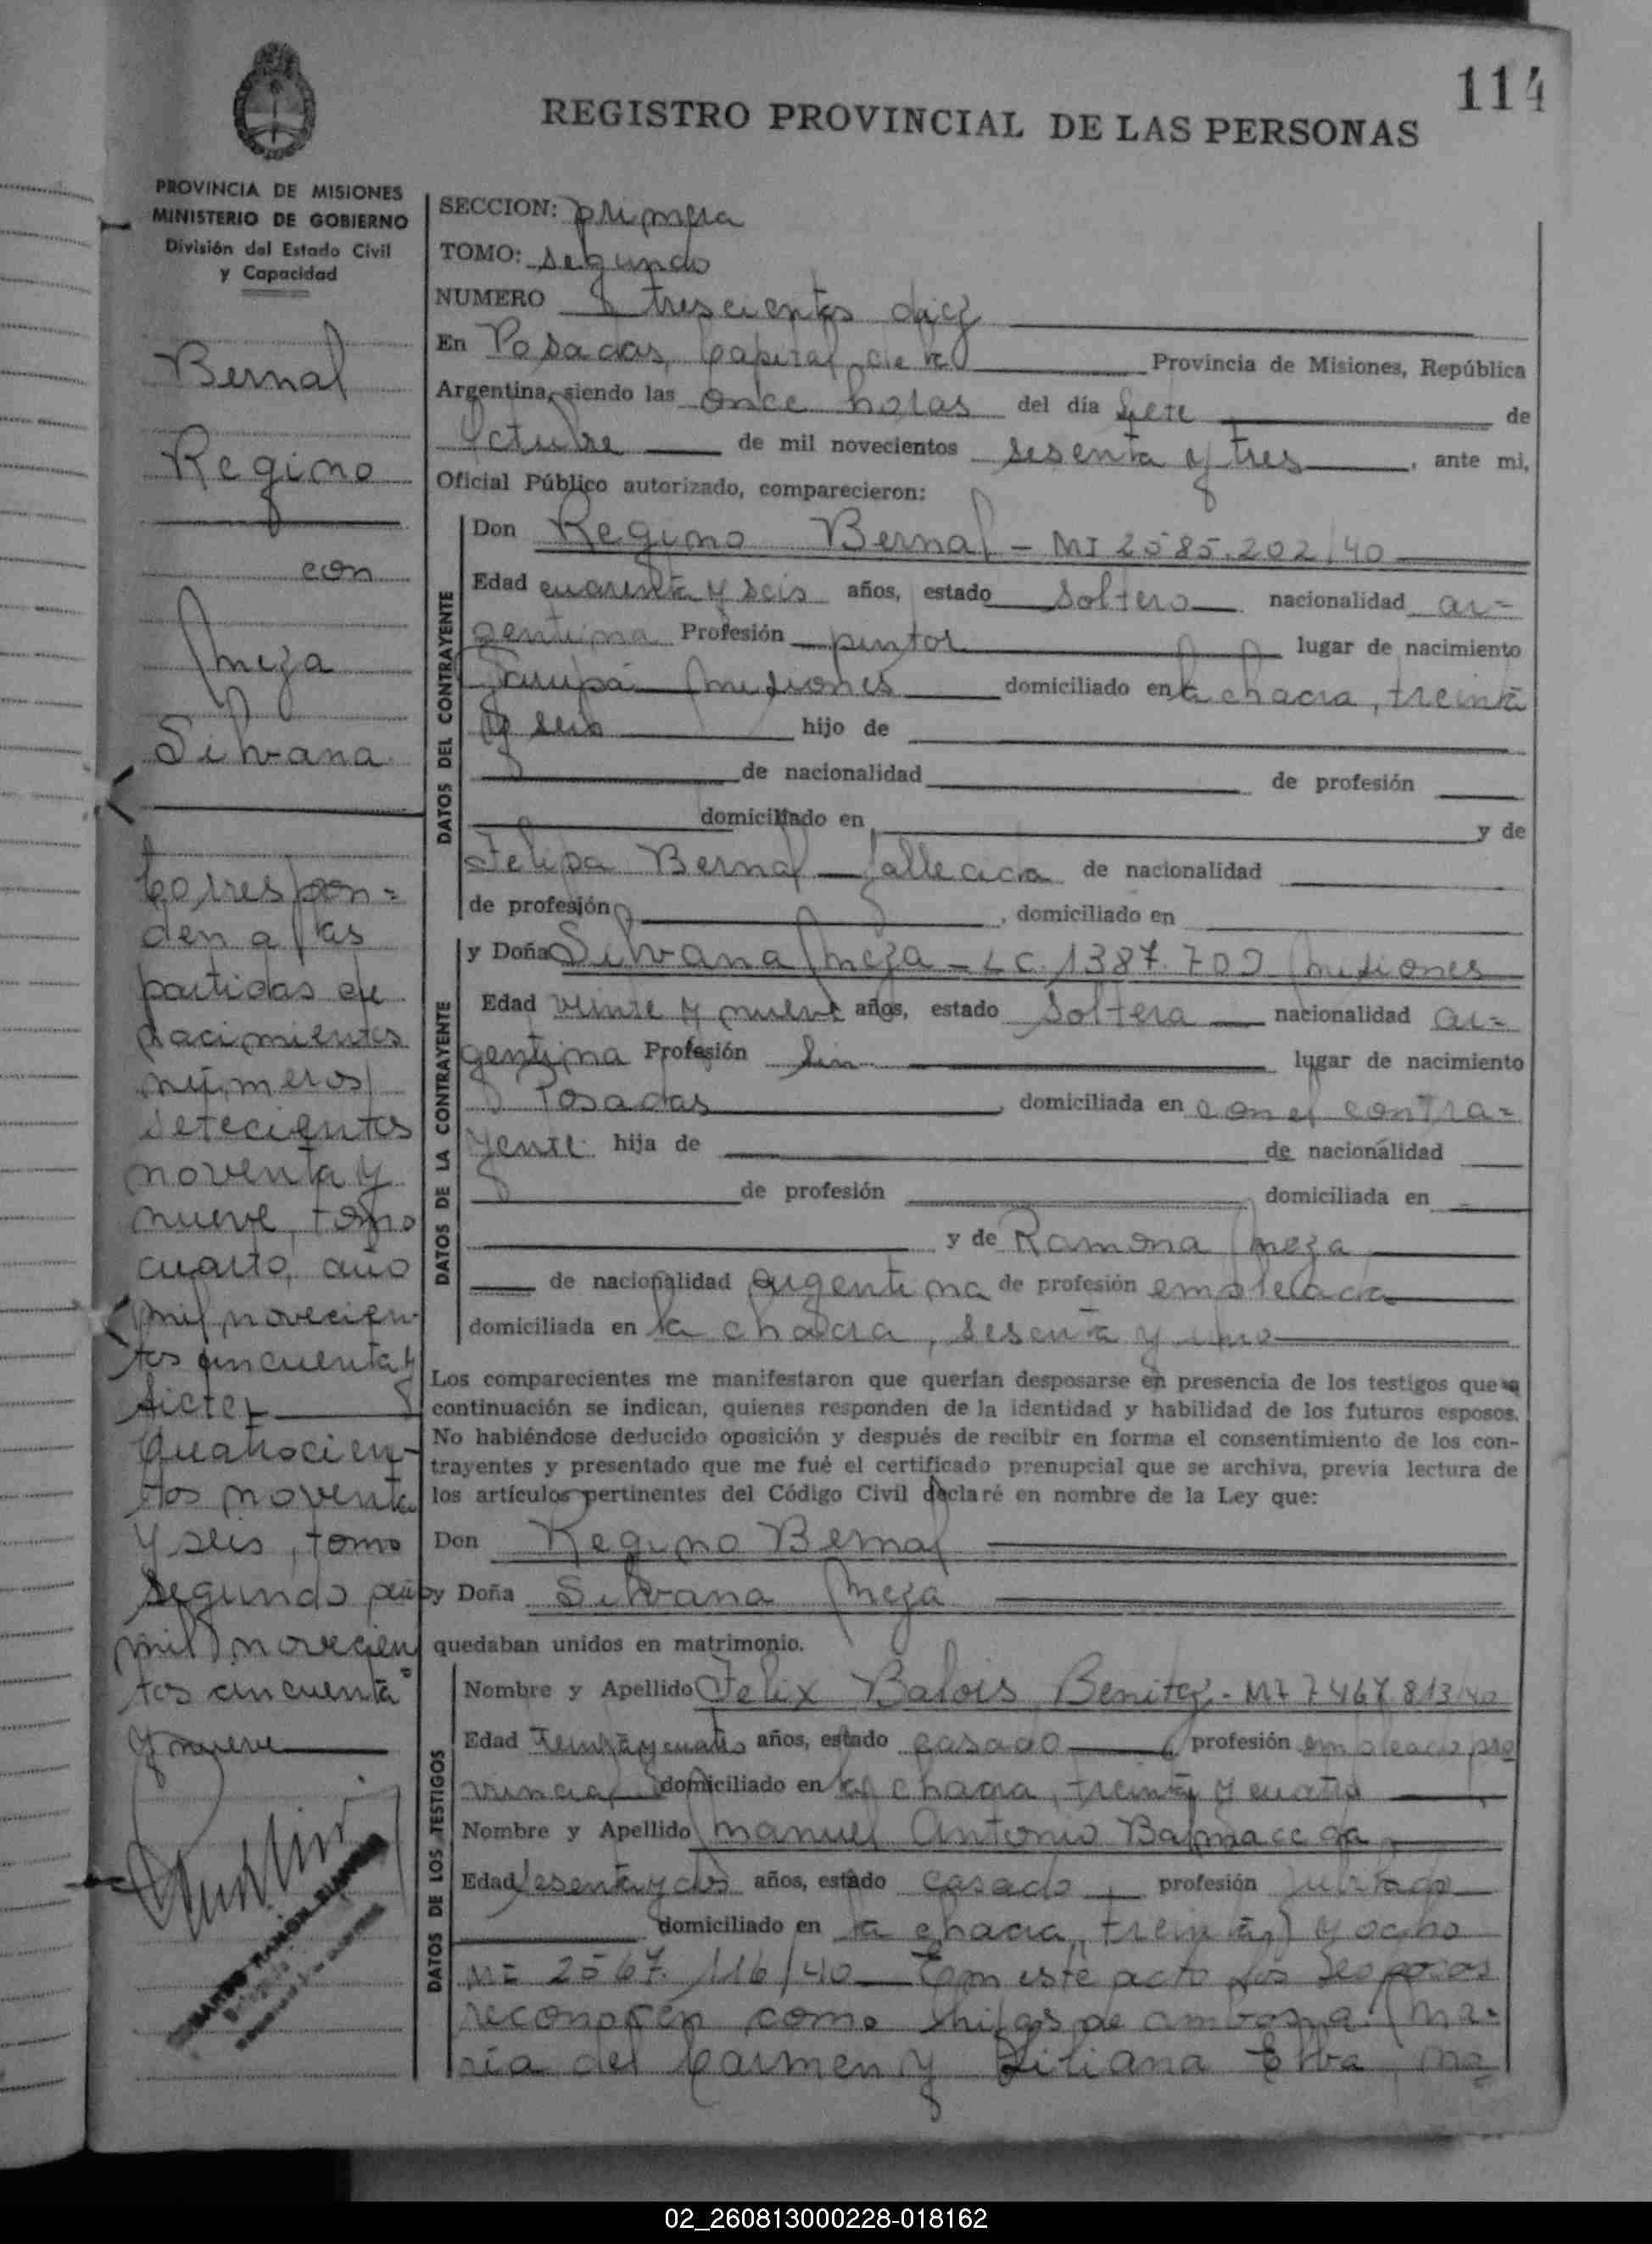 114
REGISTRO PROVINCIAL DE LAS PERSONAS
PROVINCIA DE MISIONES
MINISTERIO DE GOBIERNO
División del Estado Civil
y Capacidad
Bernal
Regino
con
Meza
Silvana
Correspon=
den a las
partidas de
nacimientos
números
setecientos
noventa y
nueve, tomo
cuarto, año
mil novecien-
tos cincuenta y
siete y
cuatrocien-
tos noventa
y seis, tomo
segundo año
mil novecien
tos cincuenta
y nueve
SECCION: primera
TOMO: segundo
NUMERO trescientos diez
En Posadas, Capital de la Provincia de Misiones, República
Argentina, siendo las once horas del día siete de
Octubre de mil novecientos sesenta y tres, ante mi,
Oficial Público autorizado, comparecieron:
DATOS DEL CONTRAYENTE
Don Regino Bernal - MI 2585.202/40
Edad cuarenta y seis años, estado soltero nacionalidad ar=
gentina Profesión pintor lugar de nacimiento
Garupá Misiones domiciliado en la chacra, treinta
y seis hijo de
de nacionalidad de profesión
domiciliado en y de
Felipa Bernal fallecida de nacionalidad
de profesión, domiciliado en
DATOS DE LA CONTRAYENTE
y Doña Silvana Meza - LC. 1387.70 Misiones
Edad veinte y nueve años, estado soltera nacionalidad ar=
gentina Profesión sin lugar de nacimiento
Posadas, domiciliada en con el contra=
yente hija de de nacionalidad
de profesión domiciliada en
y de Ramona Meza
de nacionalidad argentina de profesión empleada
domiciliada en la chacra, sesenta y uno
Los comparecientes me manifestaron que querían desposarse en presencia de los testigos que a
continuación se indican, quienes responden de la identidad y habilidad de los futuros esposos.
No habiéndose deducido oposición y después de recibir en forma el consentimiento de los con-
trayentes y presentado que me fué el certificado prenupcial que se archiva, previa lectura de
los artículos pertinentes del Código Civil declaré en nombre de la Ley que:
Don Regino Bernal
y Doña Silvana Meza
quedaban unidos en matrimonio.
DATOS DE LOS TESTIGOS
Nombre y Apellido Felix Balois Benitez - MI 7467.813/40
Edad treinta y cuatro años, estado casado profesión empleado pro
vincial domiciliado en la chacra, treinta y cuatro
Nombre y Apellido Manuel Antonio Balmaceda
Edad sesenta y dos años, estado casado, profesión jubilado
domiciliado en la chacra, treinta y ocho
MI 2567.116/40 En este acto los esposos
reconocen como hijas de ambos a: Ma=
ría del Carmen y Liliana Elba, na=
02_260813000228-018162